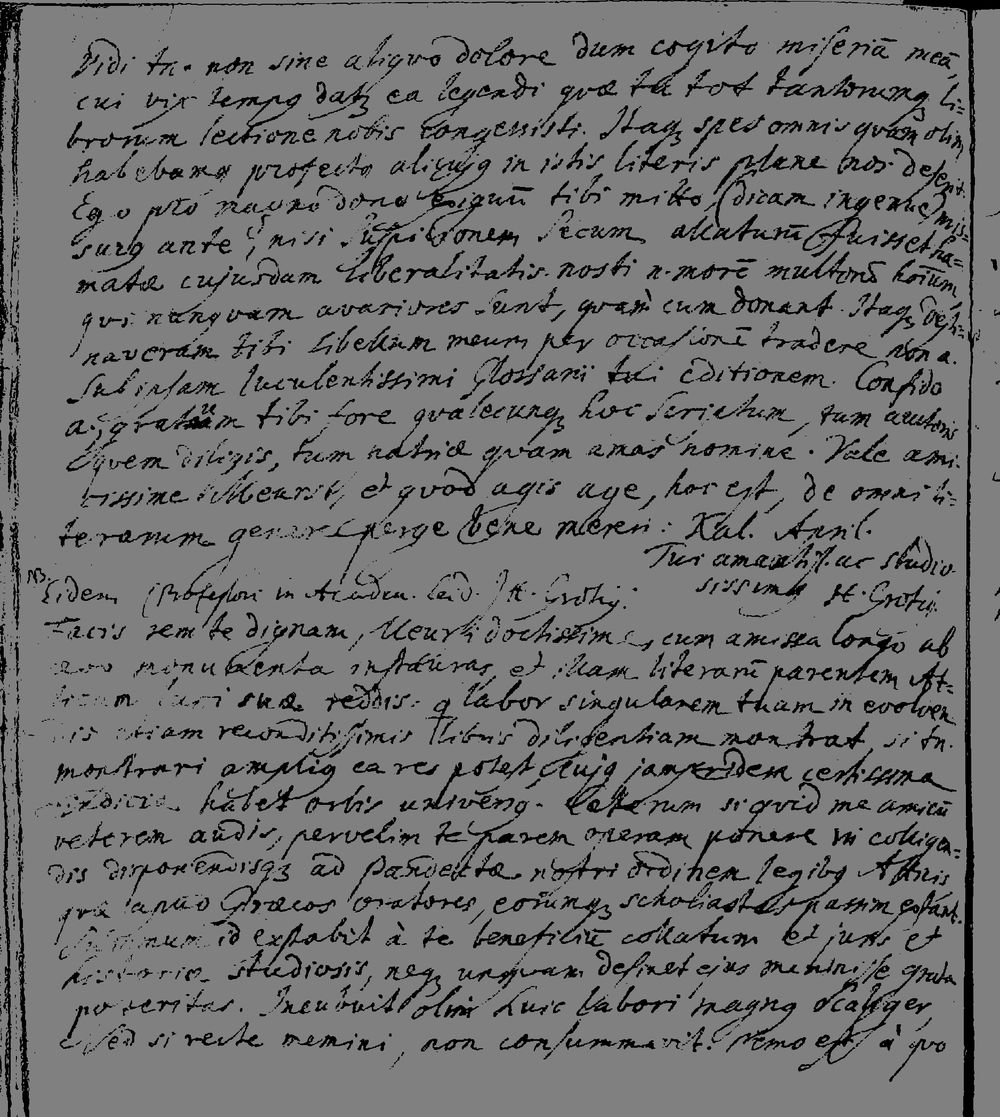 Vidi tn. non sine aliquo dolore dum cogito miseriā meā,
cui vix tempq datq ea legendi quæ tu tot tantorumq li-
brorum lectione nobis congessisti. Itaq spes omnis quam olim
habebamq profecto alicujq in istis literis plane nos deserit.
Ego pro magno dono exiguū tibi mitto, (dicam ingenue) mis-
surq ante, nisi suspicionem secum allaturū fuisset
matæ cujusdam liberalitatis. nosti n. morē multorū hoīum
qui nunquam avariores sunt, quam cum donant. Itaq desti-
naveram tibi libellum meum per occasionē tradere non a.
sub ipsam luculentissimi Glossarii tui editionem. Confido
a. gratum tibi fore qualecunq hoc scriptum, tum autoris
quem diligis, tum patriæ quam amas nomine. Vale ami-
cissime Meursi, et quod agis age, hoc est, de omni li-
terarum genere perge bene mereri. Kal. April.
Tui amantiss. ac studio
sissimq H. Grotiq.
NB. Eidem (Professori in Academ. Leid.) H. Grotiq.
Facis rem te dignam, Meursi doctissime, cum amissa longo ab
ævo monumenta instauras, et illam literarū parentem At-
ticam luci suæ reddis. q labor singularem tuam in evolven
dis etiam reconditissimis libris diligentiam monstrat, si tn.
monstrari ampliq ea res potest cujq jampridem certissima
indicia habet orbis universq. Ceterum si quid me amicū
veterem audis, pervelim te parem operam ponere in colligen-
dis disponendisq ad Pandectæ nostri ordinem legibq Atticis
quæ apud Græcos oratores, eorumq scholiastas passim extant.
id extabit à te beneficiū collatum et juris et
historiæ studiosis, neq unquam desinet ejus meminisse grata
posteritas. Incubuit olim huic labori magnq Scaliger,
sed si recte memini, non consummavit. Nemo est à quo